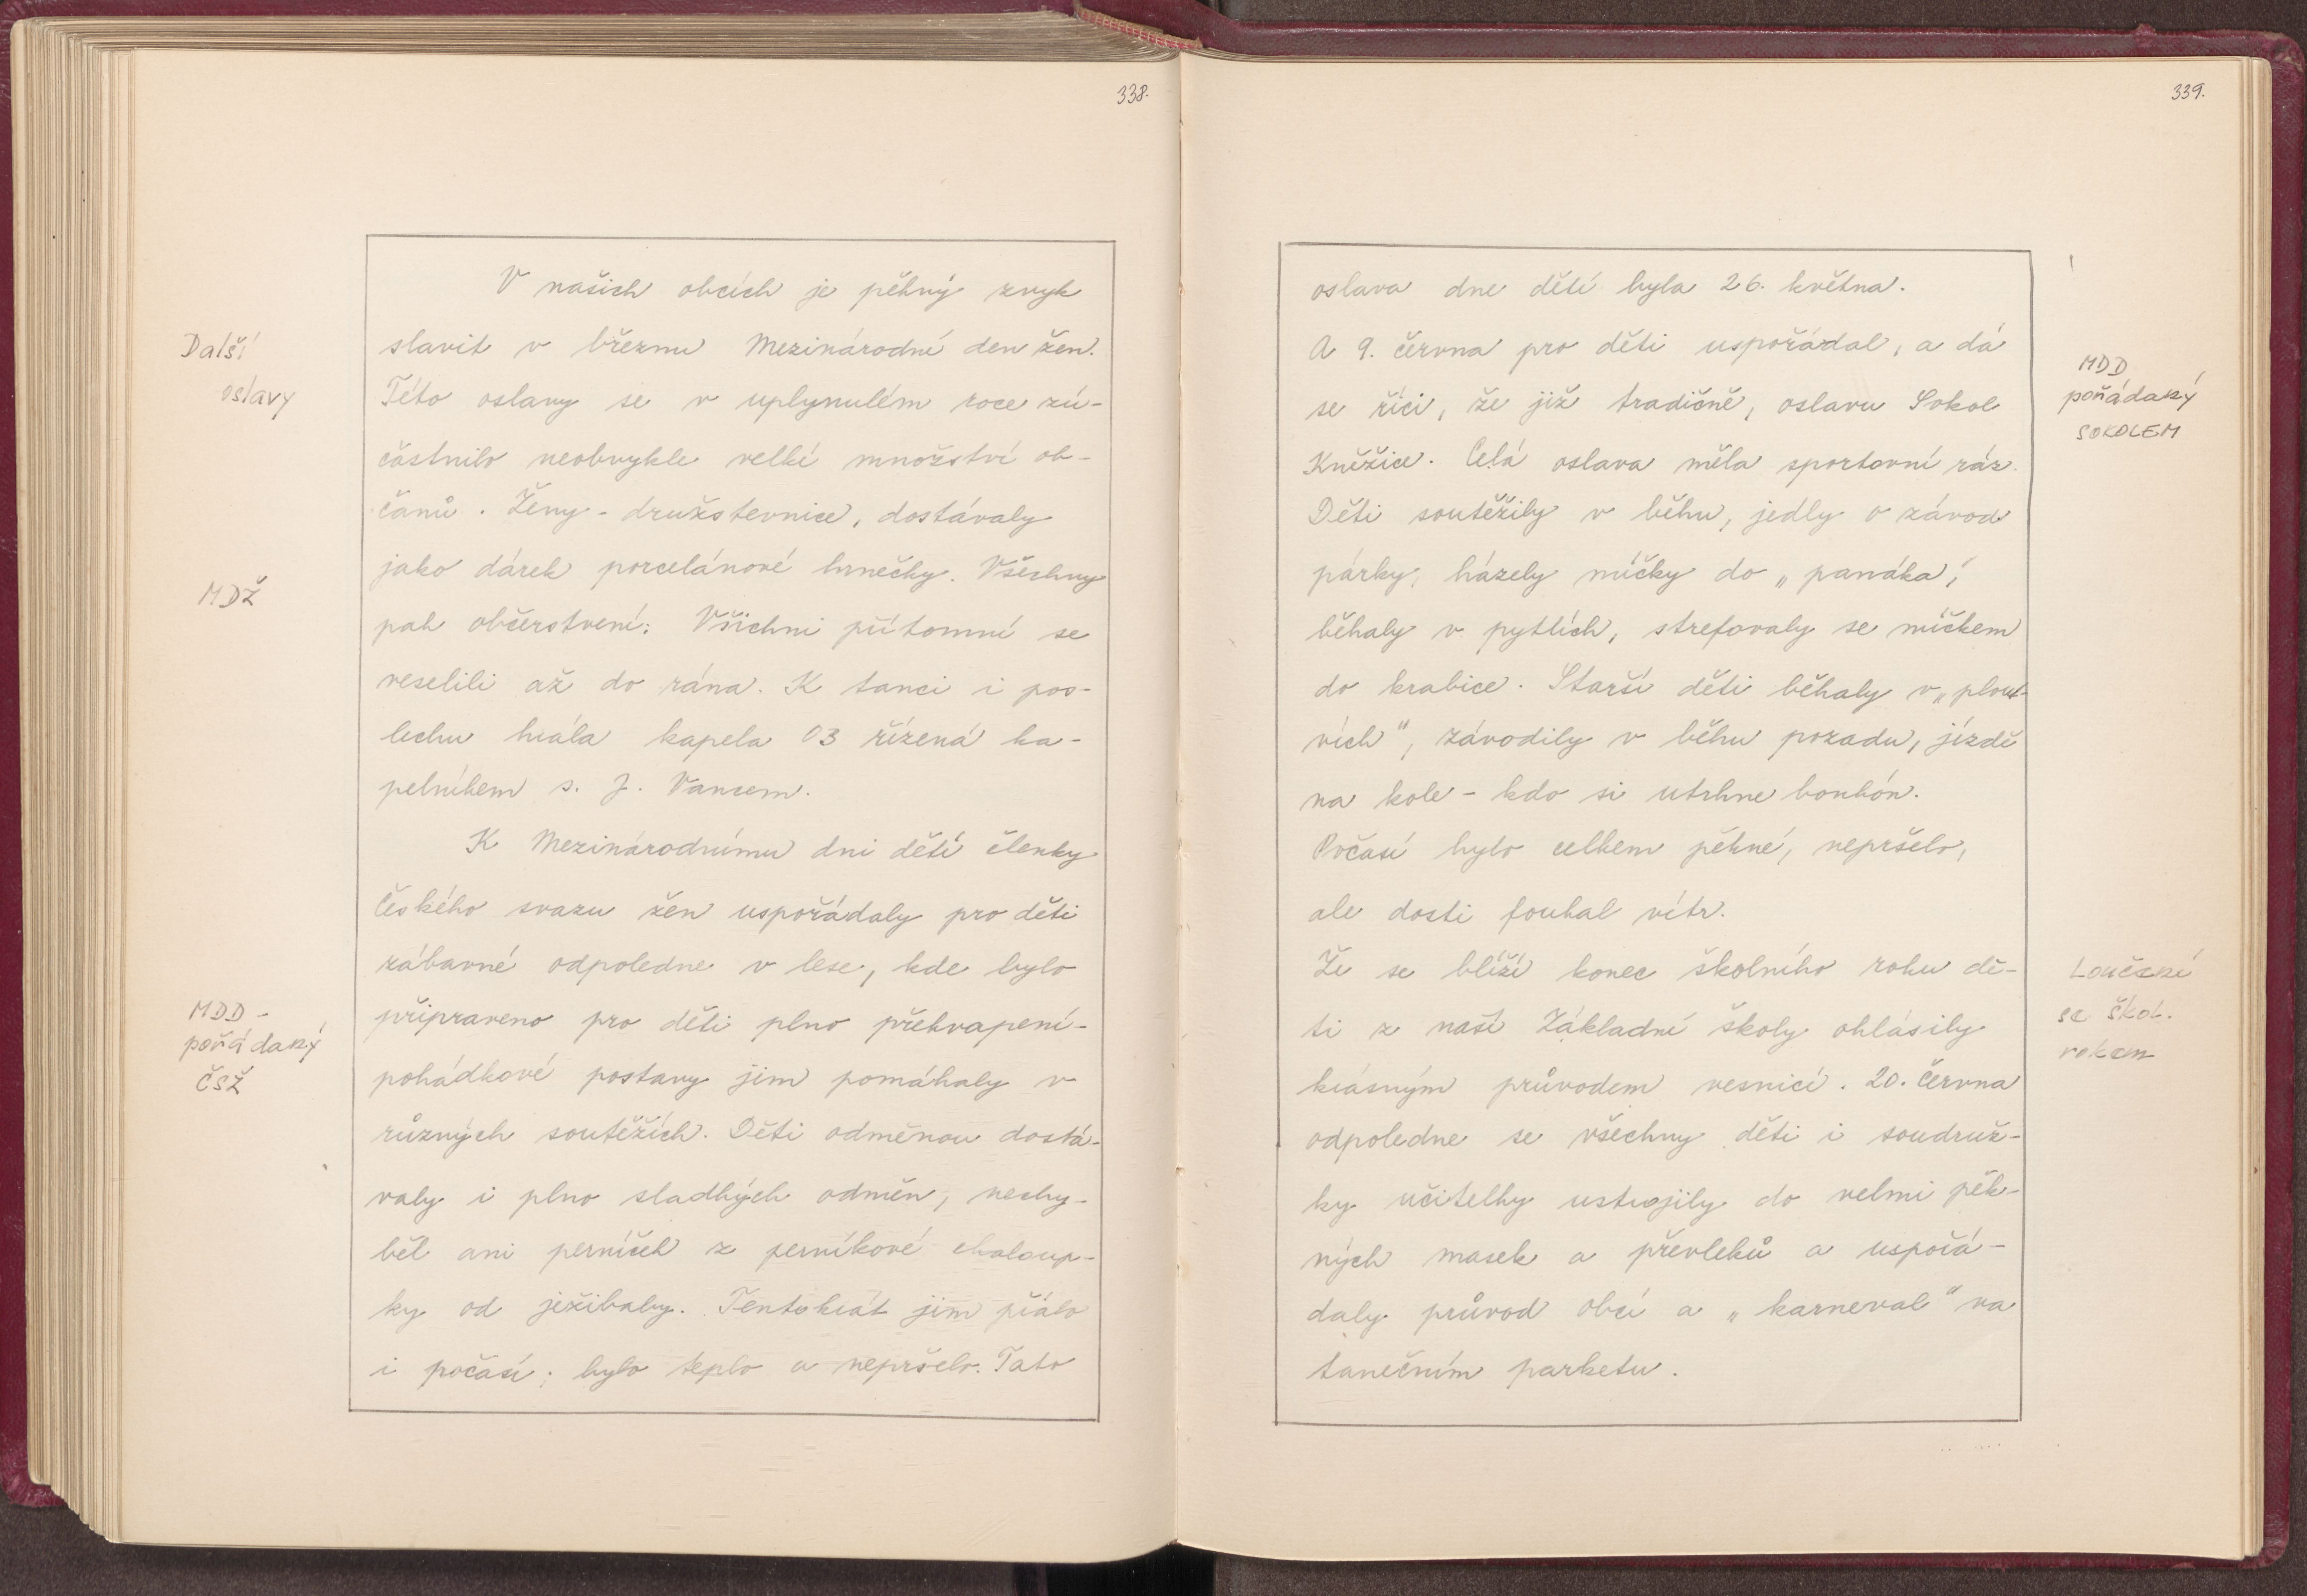 338.
Další
oslavy
MDŽ
MDD -
pořádaný
ČSŽ
V našich obcích je pěkný zvyk
slavit v březnu Mezinárodní den žen.
Této oslavy se v uplynulém roce zú-
častnilo neobvykle velké množství ob-
čanů. Ženy - družstevnice, dostávaly
jako dárek porcelánové hrnečky. Všechny
pak občerstvení. Všichni přítomní se
veselili až do rána. K tanci i pos-
lechu hrála kapela 03 řízená ka-
pelníkem s. J. Vancem.
K Mezinárodnímu dni dětí členky
Českého svazu žen uspořádaly pro děti
zábavné odpoledne v lese, kde bylo
připraveno pro děti plno překvapení -
pohádkové postavy jim pomáhaly v
různých soutěžích. Děti odměnou dostá-
valy i plno sladkých odměn, nechy-
běl ani perníček z perníkové chaloup-
ky od ježibaby. Tentokrát jim přálo
i počasí; bylo teplo a nepršelo. Tato
339.
oslava dne dětí byla 26. května.
A 9. června pro děti uspořádal, a dá
se říci, že již tradičně, oslavu Sokol
Kněžice. Celá oslava měla sportovní ráz.
Děti soutěžily v běhu, jedly o závod
párky, házely míčky do „panáka",
běhaly v pytlích, strefovaly se míčkem
do krabice. Starší děti běhaly v „plout-
vích", závodily v běhu pozadu, jízdě
na kole - kdo si utrhne bonbón.
Počasí bylo celkem pěkné, nepršelo,
ale dosti foukal vítr.
Že se blíží konec školního roku dě-
ti z naší Základní školy ohlásily
krásným průvodem vesnicí. 20. června
odpoledne se všechny děti i soudruž-
ky učitelky ustrojily do velmi pěk-
ných masek a převleků a uspořá-
daly průvod obcí a „karneval" na
tanečním parketu.
MDD
pořádaný
SOKOLEM
Loučení
se škol.
rokem